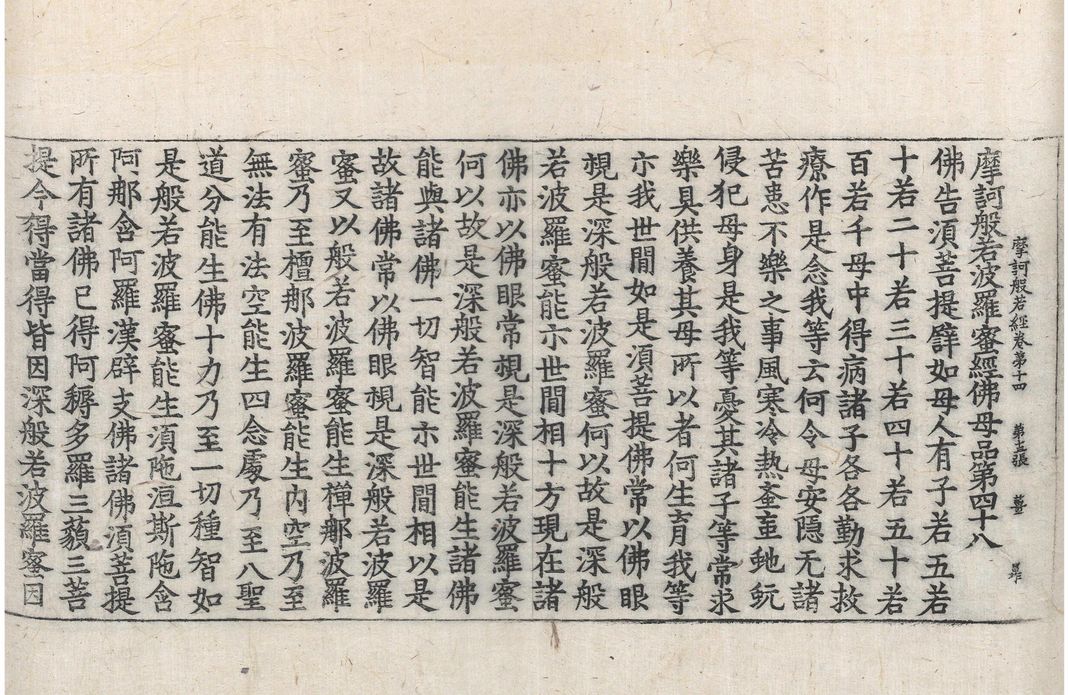 摩訶般若經卷第十四　第五張　薑　㫧
摩訶般若波羅蜜經佛母品第四十八
佛告湏菩提譬如母人有子若五若
十若二十若三十若四十若五十若
百若千母中得病諸子各各勤求救
療作是念我等云何令母安隱无諸
苦患不樂之事風寒冷热蚉䖟虵蚖
侵犯母身是我等憂其諸子等常求
樂具供養其母所以者何生育我等
亦我世閒如是湏菩提佛常以佛眼
視是深般若波羅蜜何以故是深般
若波羅蜜能亦世閒相十方現在諸
佛亦以佛眼常視是深般若波羅蜜
何以故是深般若波羅蜜能生諸佛
能與諸佛一切智能亦世閒相以是
故諸佛常以佛眼視是深般若波羅
蜜又以般若波羅蜜能生禪那波羅
蜜乃至檀那波羅蜜能生內空乃至
無法有法空能生四念處乃至八聖
道分能生佛十力乃至一切種智如
是般若波羅蜜能生湏陁洹斯陁含
阿那含阿羅漢辟支佛諸佛湏菩提
所有諸佛已得阿耨多羅三藐三菩
提今得當得皆因深般若波羅蜜因